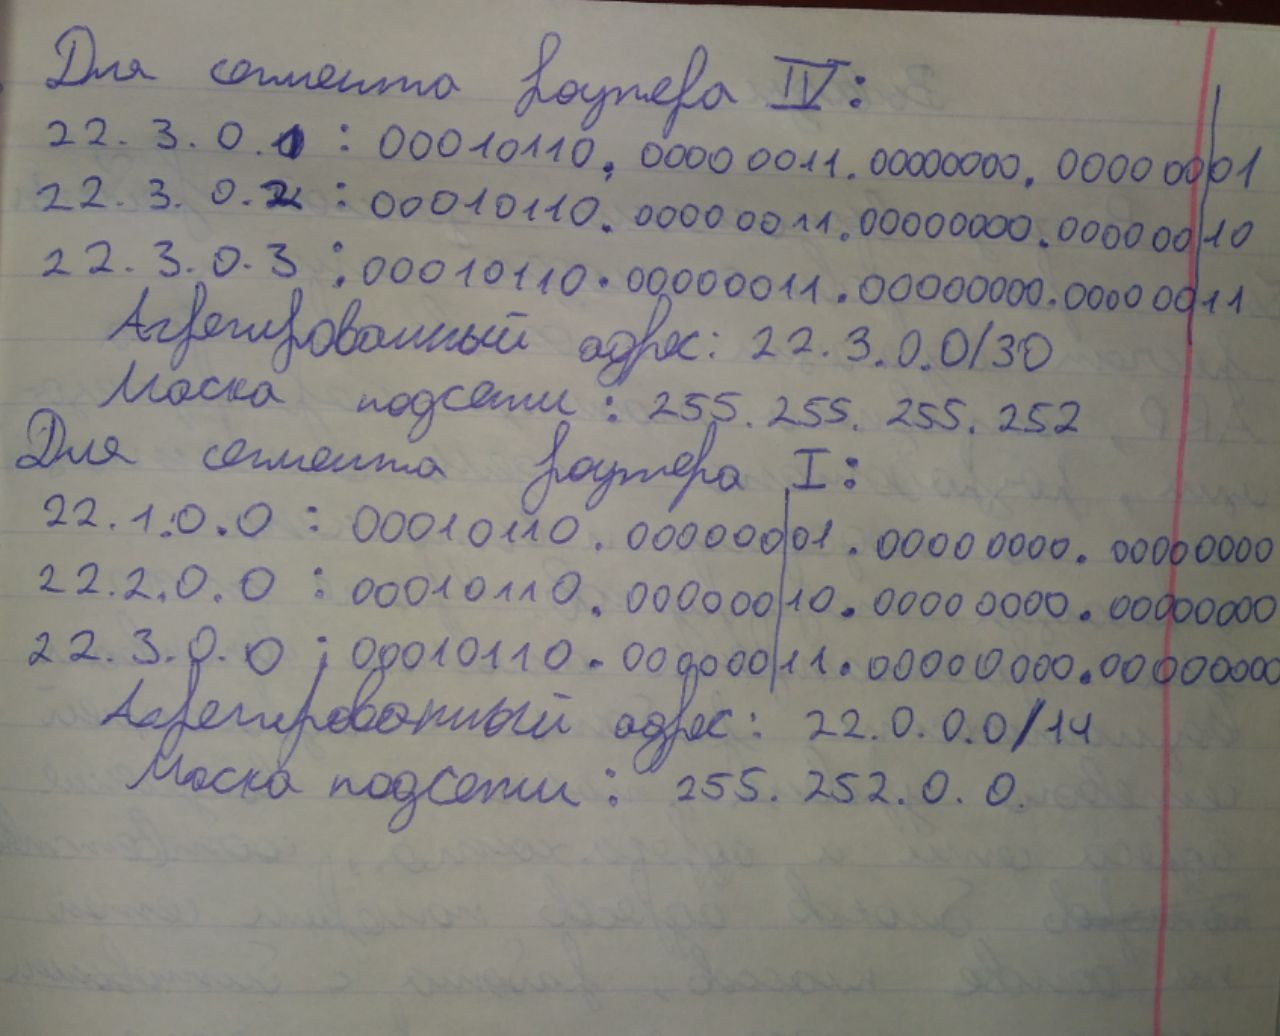 Для сегмента роутера IV:
22.3.0.1 : 00010110.00000011.00000000.00000001
22.3.0.2 : 00010110.00000011.00000000.00000010
22.3.0.3 : 00010110.00000011.00000000.00000011
Агрегированный адрес: 22.3.0.0/30
Маска подсети: 255.255.255.252
Для сегмента роутера I:
22.1.0.0 : 00010110.00000001.00000000.00000000
22.2.0.0 : 00010110.00000010.00000000.00000000
22.3.0.0 : 00010110.00000011.00000000.00000000
Агрегированный адрес: 22.0.0.0/14
Маска подсети: 255.252.0.0.